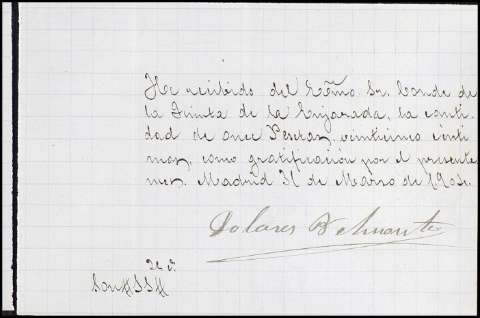 He recibido del Exmo Sr. Conde de
la Quinta de la Enjarada, la canti-
dad de once Pesetas, veinticinco cénti-
mos, como gratificación por el presente
mes. Madrid 31 de Marzo de 1904.
Dolores
Son #